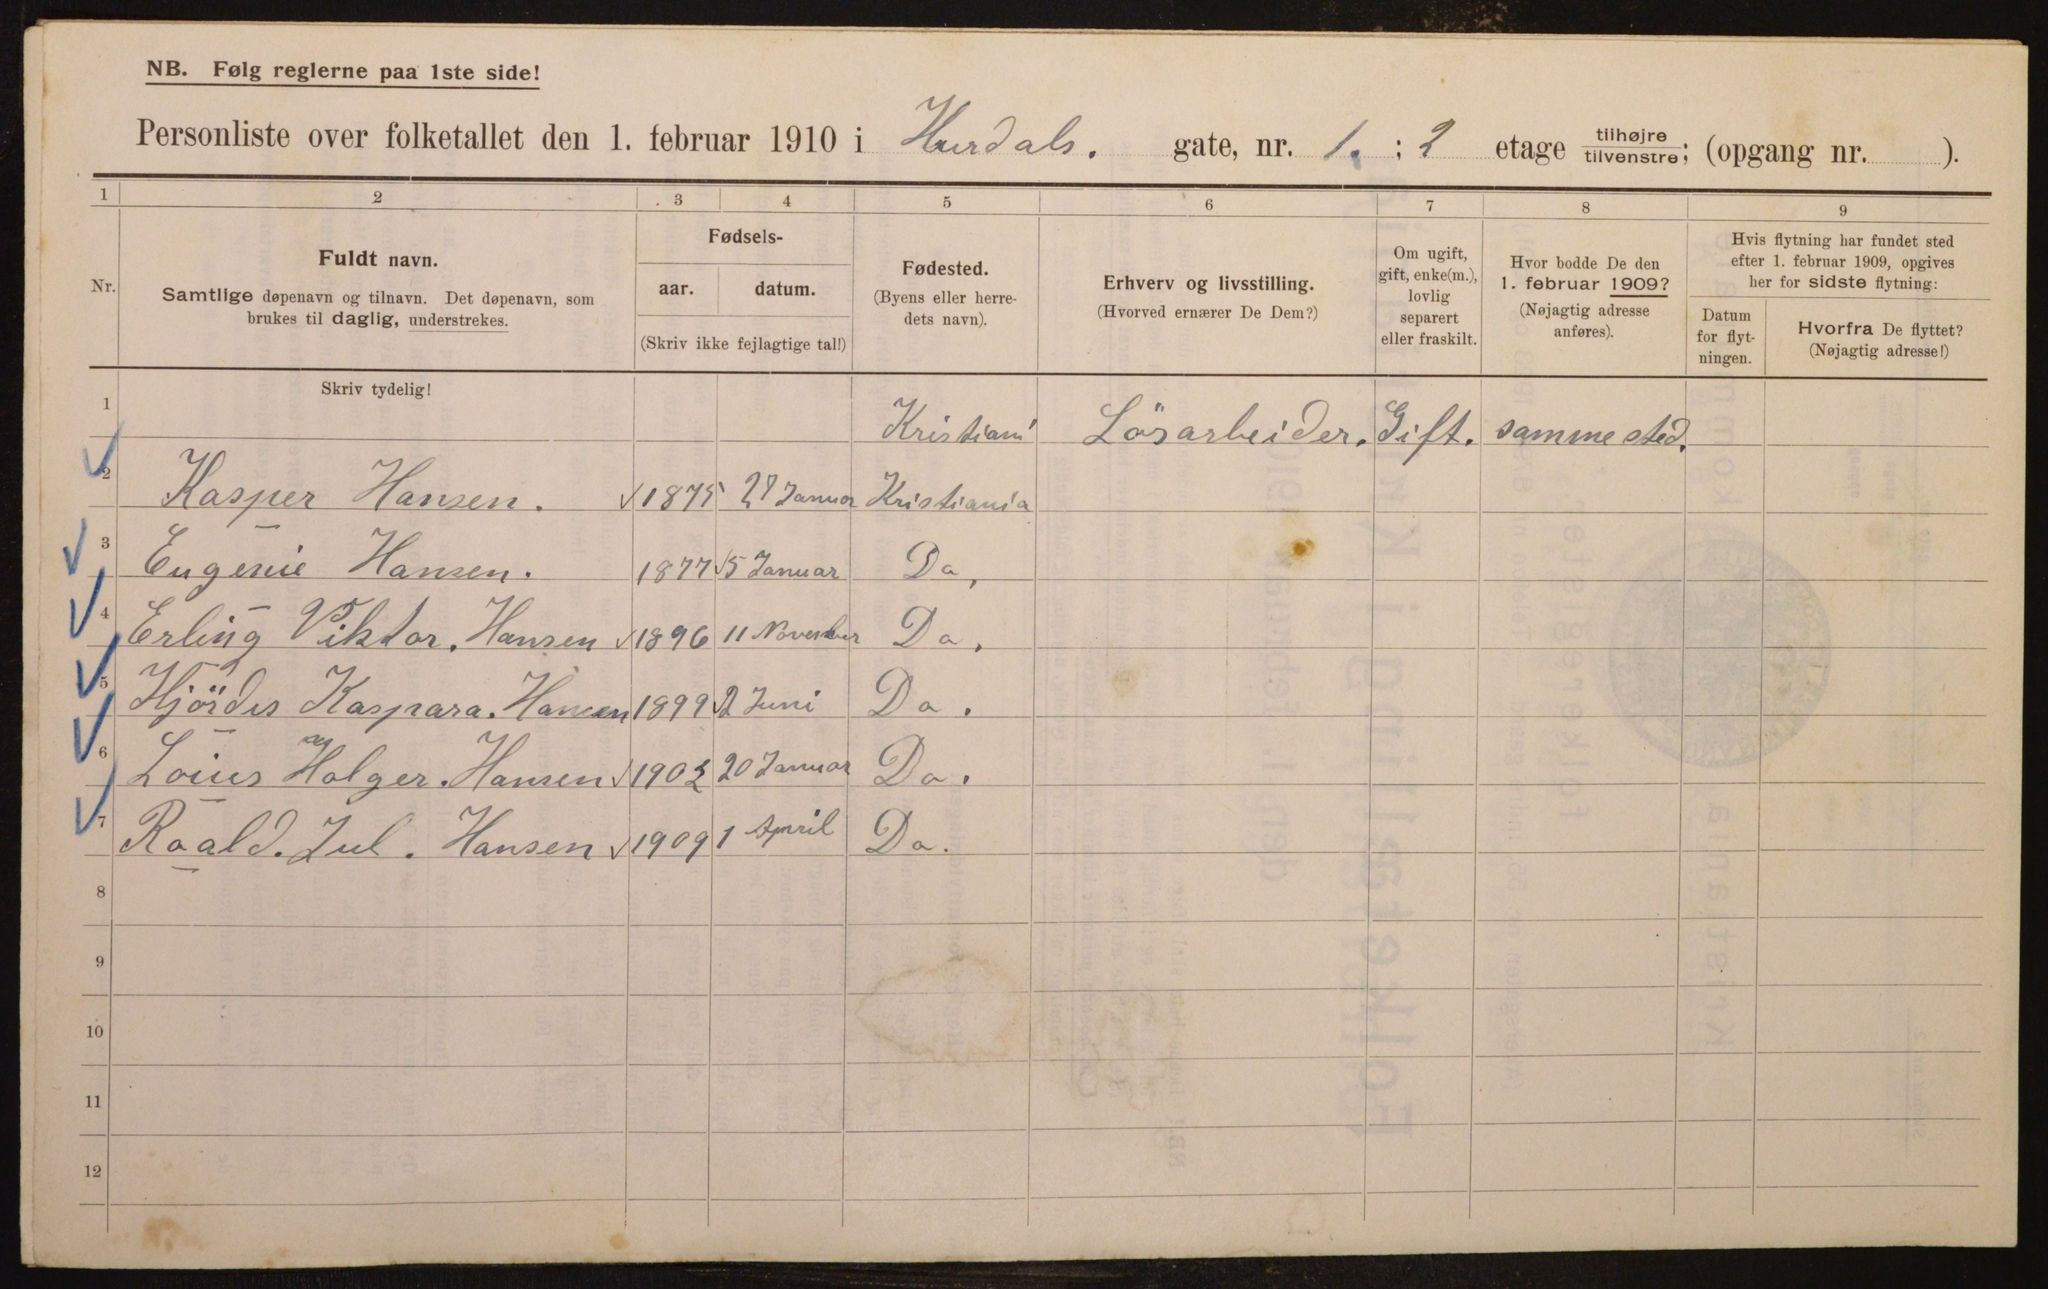 NB. Følg reglerne paa 1ste side!
Personliste over folketallet den 1. februar 1910 i Hurdals. gate, nr. 1. ; 2 etage tilhøjre/tilvenstre; (opgang nr. ).
1 2 3 4 5 6 7 8 9
Nr. Fuldt navn. Samtlige døpenavn og tilnavn. Det døpenavn, som brukes til daglig, understrekes.
Fødsels- aar. datum. (Skriv ikke fejlagtige tal!)
Fødested. (Byens eller herredets navn).
Erhverv og livsstilling. (Hvorved ernærer De Dem?)
Om ugift, gift, enke(m.), lovlig separert eller fraskilt.
Hvor bodde De den 1. februar 1909? (Nøjagtig adresse anføres).
Hvis flytning har fundet sted efter 1. februar 1909, opgives her for sidste flytning:
Datum for flytningen.
Hvorfra De flyttet? (Nøjagtig adresse!)
Skriv tydelig!
1 Kristiani Lösarbeider. Gift. samme sted.
2 Kasper Hansen. 1875 27 Januar Kristiania
3 Eugenie Hansen. 1877 5 Januar Do,
4 Erling Viktor. Hansen 1896 11 November Do.
5 Hjördis Kaspara. Hansen 1899 2 Juni Do.
6 Loius Holger. Hansen 1902 20 Januar Do.
7 Roald. Jul. Hansen 1909 1 April Do.
8
9
10
11
12